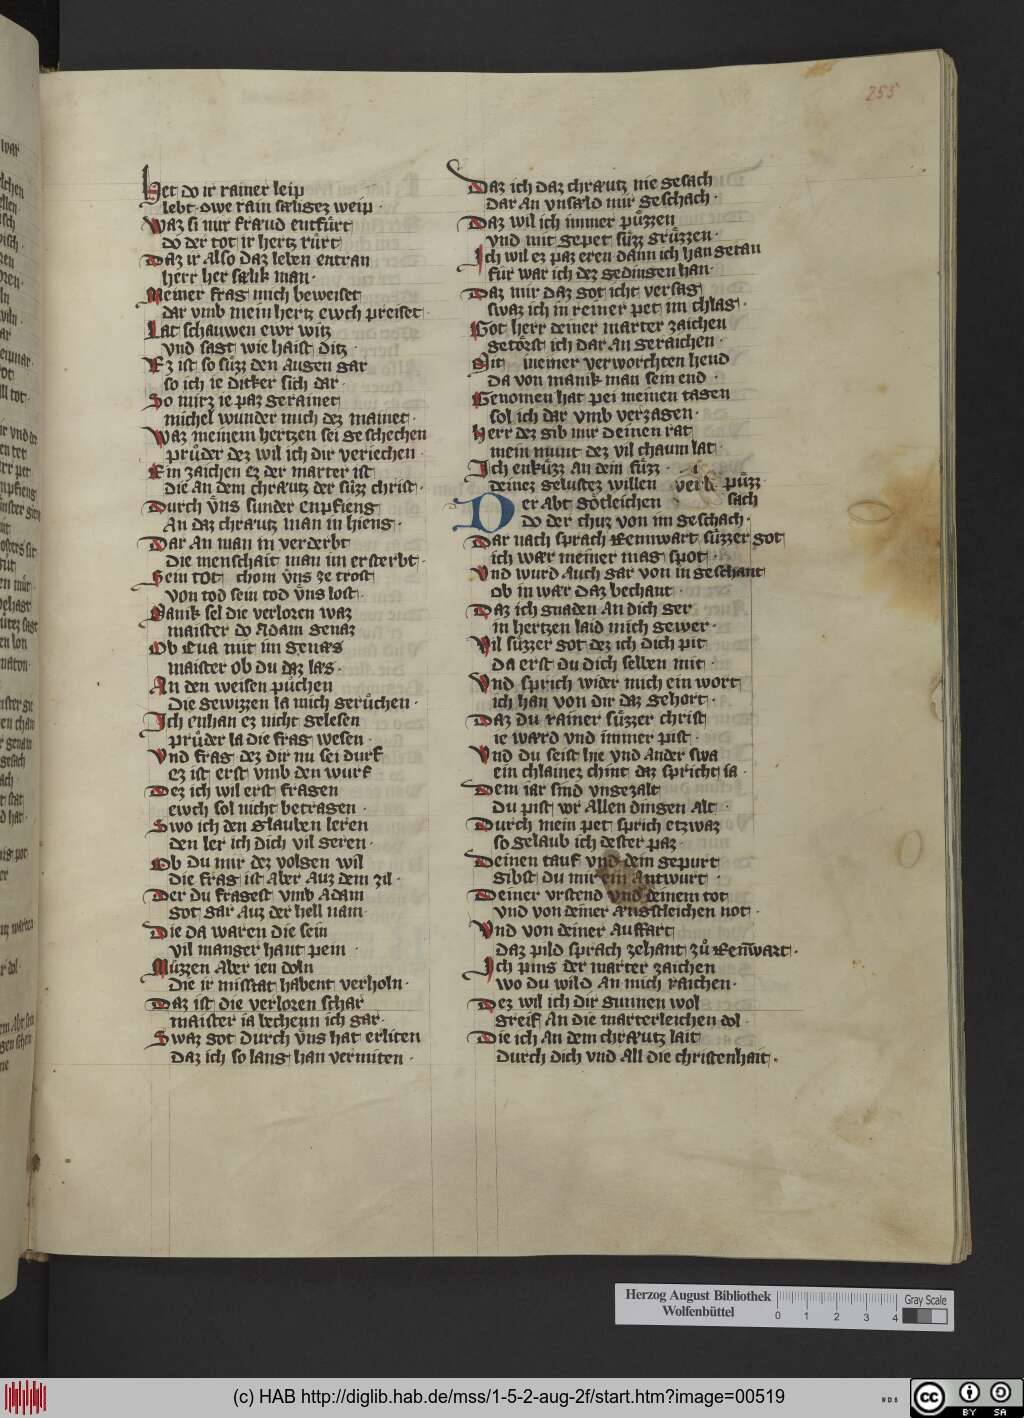 255
Het do ir rainer leip
lebt · owe rain sæligez weip ·
Waz si mir fræud entfůrt
do der tot ir hertz růrt
Daz ir also daz leben entran
herr her sælik man ·
Meiner frag mich beweiset
dar vmb mein hertz ewch preiset ·
Lat schauwen ewr witz
vnd sagt wie haist ditz ·
Ez ist so süzz den augen gar
so ich ie dicker sich dar ·
So mirz ie paz gerainet
michel wunder mich dez mainet ·
Waz meinem hertzen sei geschechen
průder dez wil ich dir veriechen ·
Ein zaichen ez der marter ist
die an dem chræutz der süzz christ ·
Durch vns sunder enpfieng
An daz chræutz man in hieng ·
Dar an man in verderbt
die menschait man im ersterbt ·
Sein tot chom vns ze trost
von tod sein tod vns lost ·
Manik sel die verlozen waz
maister do Adam genaz
Ob Eua mit im genæs
maister ob du daz las ·
An den weisen půchen
die gewizzen la mich gerůchen ·
Ich enhan ez nicht gelesen
průder la die frag wesen ·
Vnd frag dez dir nu sei durf
ez ist erst vmb den wurf
Dez ich wil erst fragen
ewch sol nicht betragen ·
Swo ich den glauben leren
den ler ich dich vil geren ·
Ob du mir dez volgen wil
die frag ist aber auz dem zil ·
Der du fragest vmb Adam
got gar auz der hell nam
Die da waren die sein
vil manger hant pein ·
Müzzen aber ien doln
die ir misstat habent verholn ·
Daz ist die verlozen schar
maister ia lechenn ich gar ·
Swaz got durch vns hat erliten
daz ich so lang han vermiten ·
Daz ich daz chræutz nie gesach
dar an vnsæld mir geschach ·
Daz wil ich immer püzzen
vnd mit gepet süzz grüzzen ·
Ich wil ez paz eren dann ich han getan
für war ich dez gedingen han ·
Daz mir daz got icht versag
swaz ich in reiner pet im chlag ·
Got herr deiner marter zaichen
getörst ich dar an geraichen ·
Mit meiner verworchten hend
da von manik man sein end ·
Genomen hat pei meinen tagen
sol ich dar vmb verzagen ·
Herr dez gib mir deinen rat
mein munt dez vil chaum lat ·
Ich enküzz an dein füzz ·
deinez gelustez willen püzz
Der abt götleichen sach
do der chuz von im geschach ·
Dar nach sprach Rennwart süzzer got
ich wær meiner mag spot ·
Vnd wurd auch gar von in geschant
ob in wær daz bechant ·
Daz ich gnaden an dich ger
in hertzen laid mich gewer ·
Vil süzzer got dez ich dich pit
da erst du dich selben mit ·
Vnd sprich wider mich ein wort
ich han von dir daz gehort ·
Daz du rainer süzzer christ
ie wærd vnd immer pist ·
Vnd du seist hie vnd ander swa
ein chlainez chint daz spricht ia ·
Dem iar sind vngezalt
du pist vor allen dingen alt ·
Durch mein pet sprich etzwaz
so gelaub ich dester paz ·
Deinen tauf vnd dein gepurt
gibst du mir ein antwurt ·
Deiner vrstend vnd deinem tot
vnd von deiner angstleichen not ·
Vnd von deiner auffart
daz pild sprach zehant zů Rennwart ·
Ich pins der marter zaichen
wo du wild an mich raichen ·
Dez wil ich dir gunnen wol
greif an die marterleichen dol ·
Die ich an dem chræutz lait
durch dich vnd all die christenhait ·
Herzog August Bibliothek
Wolfenbüttel
0 1 2 3 4
Gray Scale
(c) HAB http://diglib.hab.de/mss/1-5-2-aug-2f/start.htm?image=00519
WDB
cc BY SA